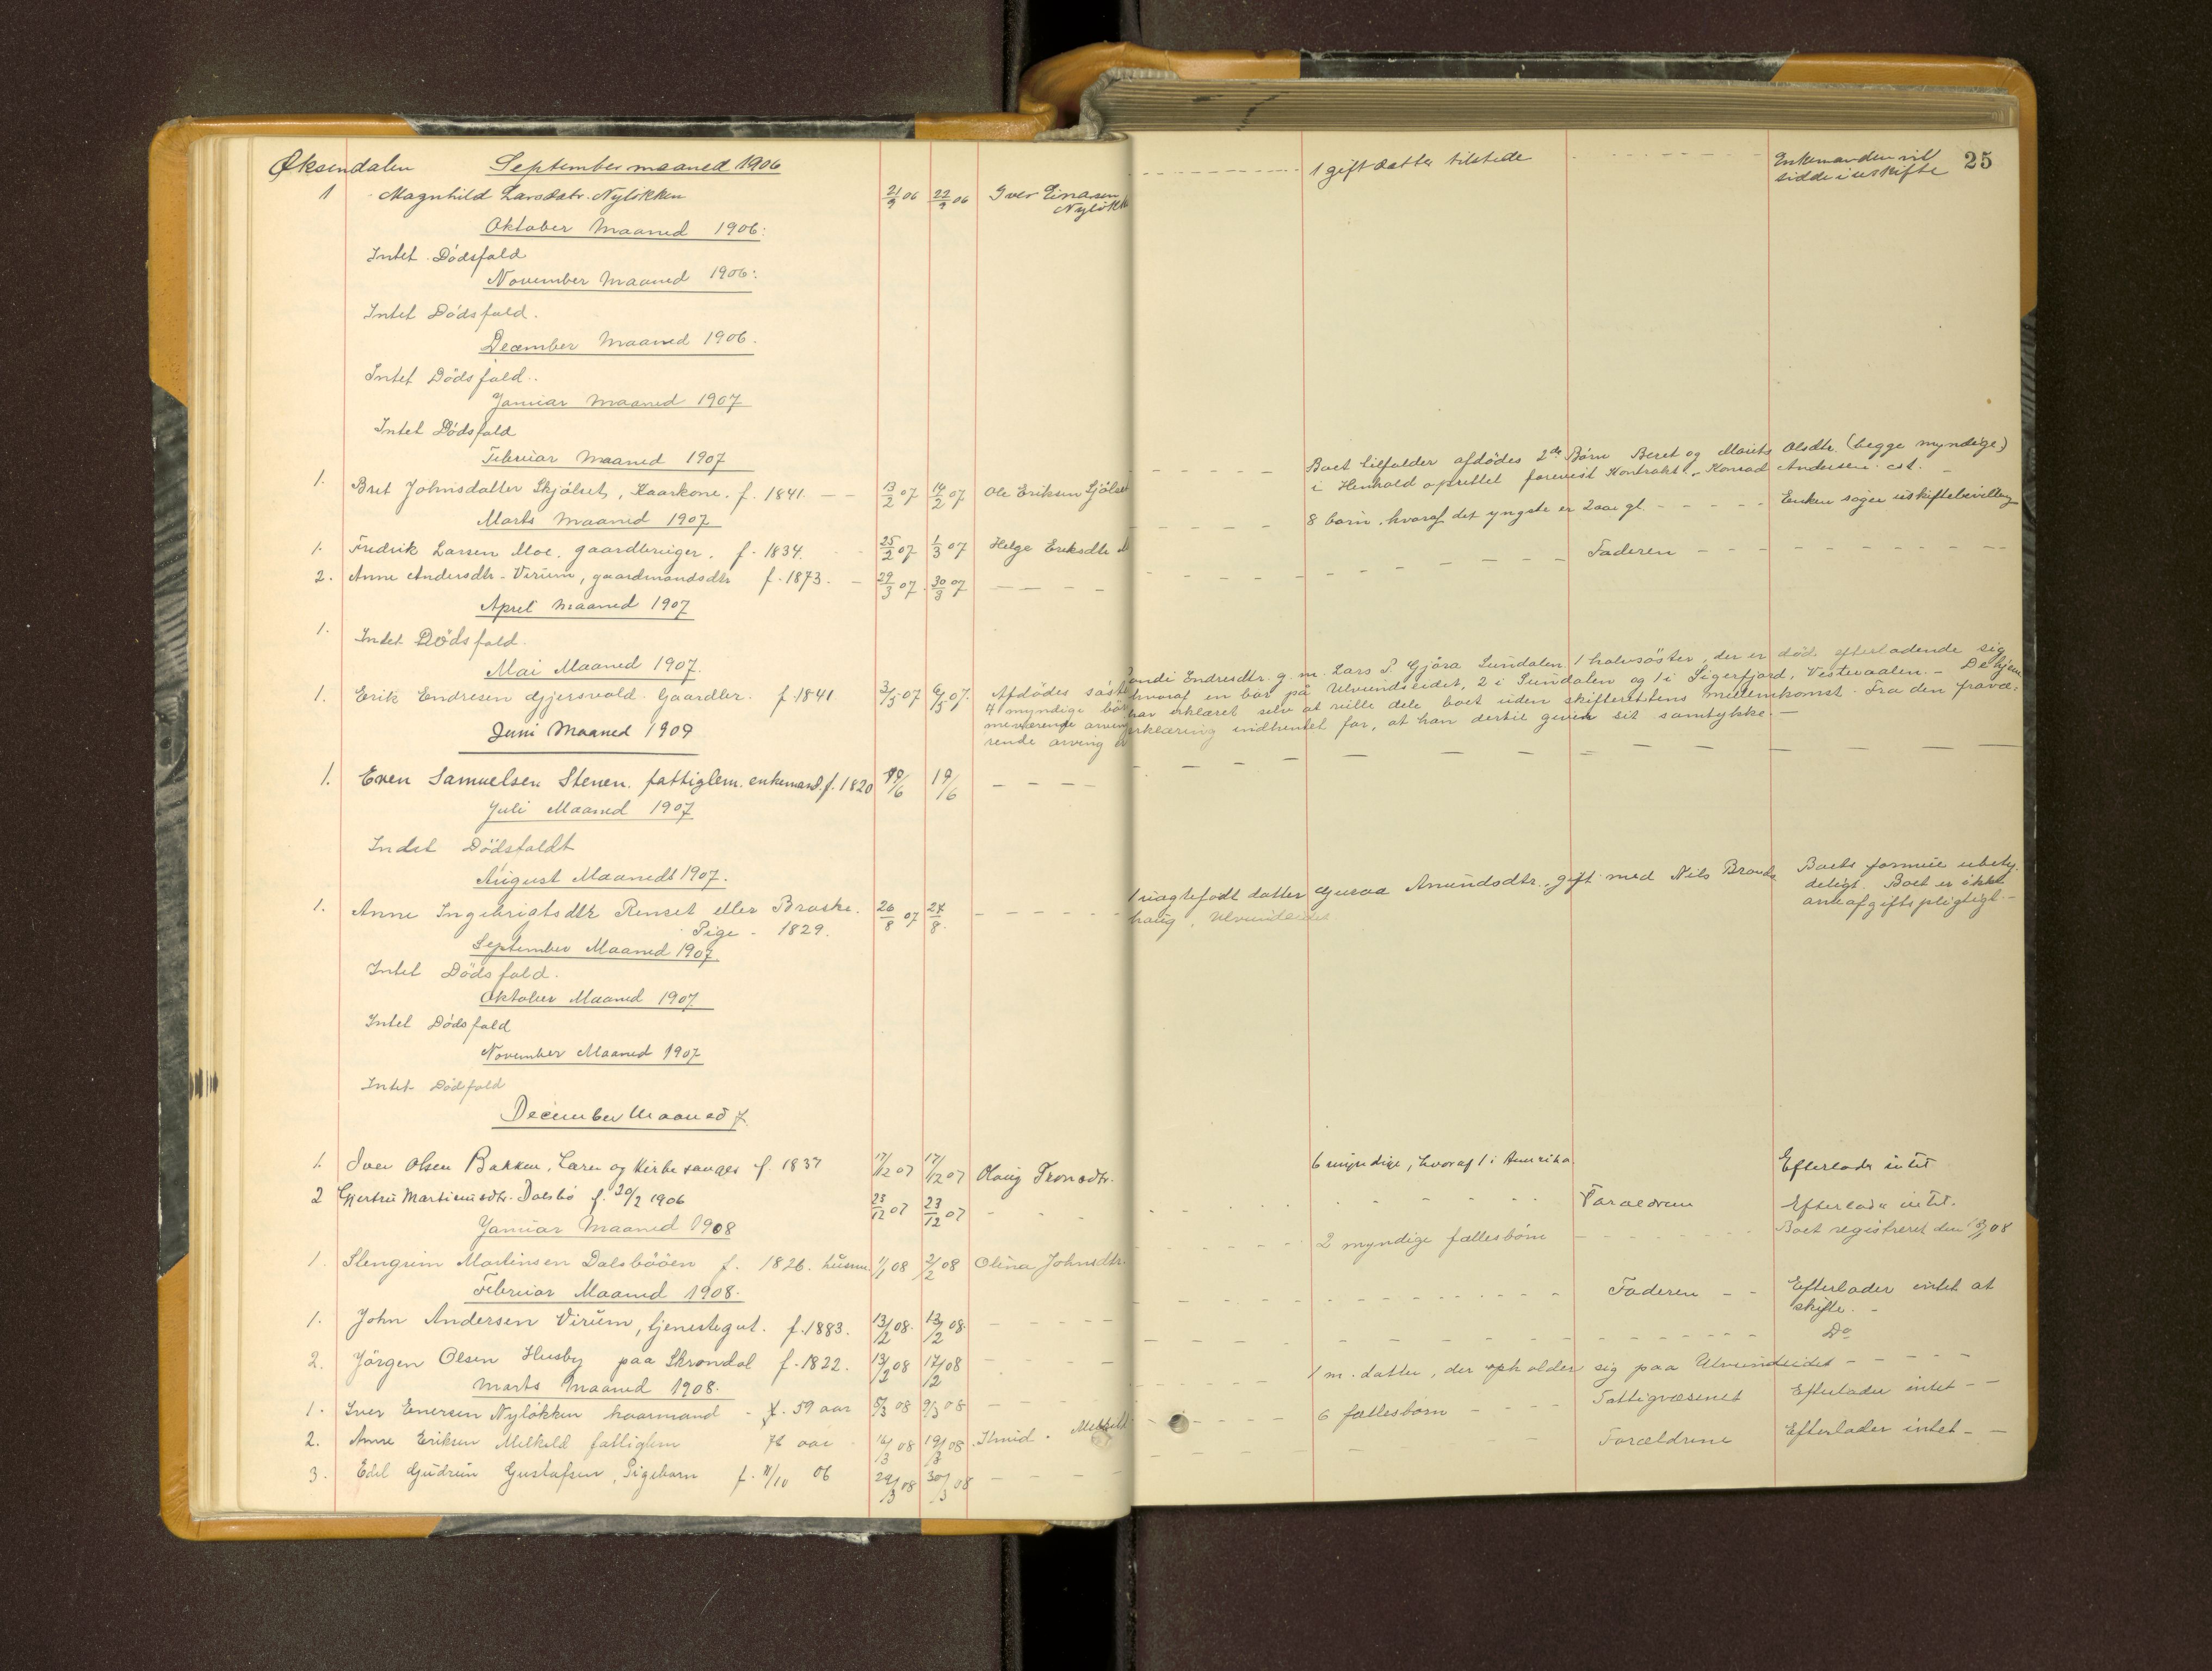 Øksendalen September maaned 1906
1 Magnhild Larsdatr. Nyløkken 21/9 06 22/9 06 Iver Einarsen
Nyløkk
1 gift datter tilstede
Enkemanden vil
sidde i uskifte
25
Oktober Maaned 1906:
Intet Dödsfald
November Maaned 1906:
Intet Dödsfald.
December Maaned 1906.
Intet Dödsfald.
Januar Maaned 1907
Intet Dödsfald
Februar Maaned 1907
1. Bret Johnsdatter Skjölset, Kaarkone. f. 1841. 13/2 07 14/2 07 Ole Eriksen Sjölse
Boet tilfalder afdödes 2de Börn Beret og Marits Olsdtr. (begge myndige)
i Henhold oprettet forevist Kontrakt. - Konrad Andersen cst.
Marts Maaned 1907
1. Fredrik Larsen Moe, gaardbruger. f. 1834. 25/2 07 1/3 07 Helge Eriksdtr
8 børn, hvoraf det yngste er 2 aar gl. Enken søger uskiftebevilling
2. Anne Andersdtr. Virum, gaardmandsdtr f. 1873. 29/3 07 30/3 07 Faderen
April Maaned 1907
1. Intet Dödsfald.
Mai Maaned 1907.
1. Erik Endresen Gjersvold. Gaardbr. f. 1841. 3/5 07 6/5 07. Afdödes söst
andi Endresdtr. g. m. Lars P. Gjöra Sundalen 1 halvsöster, der er död efterladende sig
4 myndige bör hvoraf en bor på Ulvundeidet, 2 i Sundalen og 1 i Sigerfjord, Vesteraalen. - De hjem
meværende arvin har erklæret selv at ville dele boet uden skifterettens mellemkomst. Fra den fravæ-
rende arving er erklæring indhentet for, at han dertil given sit samtykke. -
Juni Maaned 1909
1. Even Samuelsen Stenen. fattiglem. enkemand. f. 1820 19/6 19/6
Juli Maaned 1907
Indet Dödsfaldt
August Maanedt 1907.
1. Anne Ingebrigtsdtr Renset eller Braske. 26/8 07 27/8.
Pige - 1829.
1 uægtefödt datter Guroa Amundsdtr., gift med Nils Brands
haug, Ulvundeidet
Boets formue ubety.
deligt. Boet er ikke
arveafgiftspligtigt. -
September Maaned 1907
Intet Dödsfald.
Oktober Maaned 1907
Intet Dödsfald
November Maaned 1907
Intet Dödsfald
December Maaned 7.
1. Iver Olsen Bakken, Lærer og Kirkesanger f. 1837 17/12 07 17/12 07 Olaug Tronsdtr.
6 myndige, hvoraf 1 i Amerika Efterlade intet
2 Gjertru Martinusdtr. Dalsbö f. 20/2 1906 23/12 07 23/12 07 Forældren Efterlade intet.
Januar Maaned 1908
1. Stengrim Martinsen Dalsbööen f. 1826. husm. 1/1 08 2/2 08 Olina Johnsdtr.
2 myndige fællesbörn Boet registreret den 13/2 08
Februar Maaned 1908.
1. John Andersen Virum, tjenestegut. f. 1883. 13/2 08. 13/2 08. Faderen Efterlader intet at
skifte. -
2. Jörgen Olsen Husby paa Skrondal f. 1822. 13/2 08 17/2 08 Do
Marts Maaned 1908.
1. Iver Enersen Nyløkken kaarmand - f. 59 aar 5/3 08 9/3 08
1 m. datter, der opholder sig paa Ulvundeidet
2. Anne Eriksen Melkild fattiglem 76 aar 16/3 08 19/3 08
6 fællesbørn Fattigvæsenet Efterlader intet
3. Edel Gudrun Gustafsen, Pigebarn f. 11/10 06 29/3 08 30/3 08
Forældrene Efterlader intet